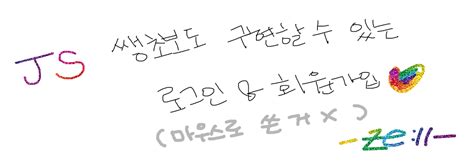 JS 쌩초보도 구현할 수 있는
로그인 & 회원가입
(마우스로 쓴 거 X)
-ze:ll-